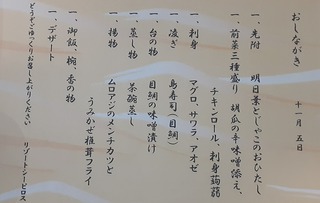 おしながき 十一月 五日
一、先附 明日葉としゃこのおひたし
一、前菜三種盛り 胡瓜の辛味噌添え、
チキンロール、刺身蒟蒻
一、刺身 マグロ、サワラ、アオゼ
一、凌ぎ 島寿司(目鯛)
一、台の物 目鯛の味噌漬け
一、蒸し物 茶碗蒸し
一、揚物 ムロアジのメンチカツと
うみかぜ椎茸フライ
一、御飯、椀、香の物
一、デザート
どうぞごゆっくりお召し上がりください
リゾートシーピロス